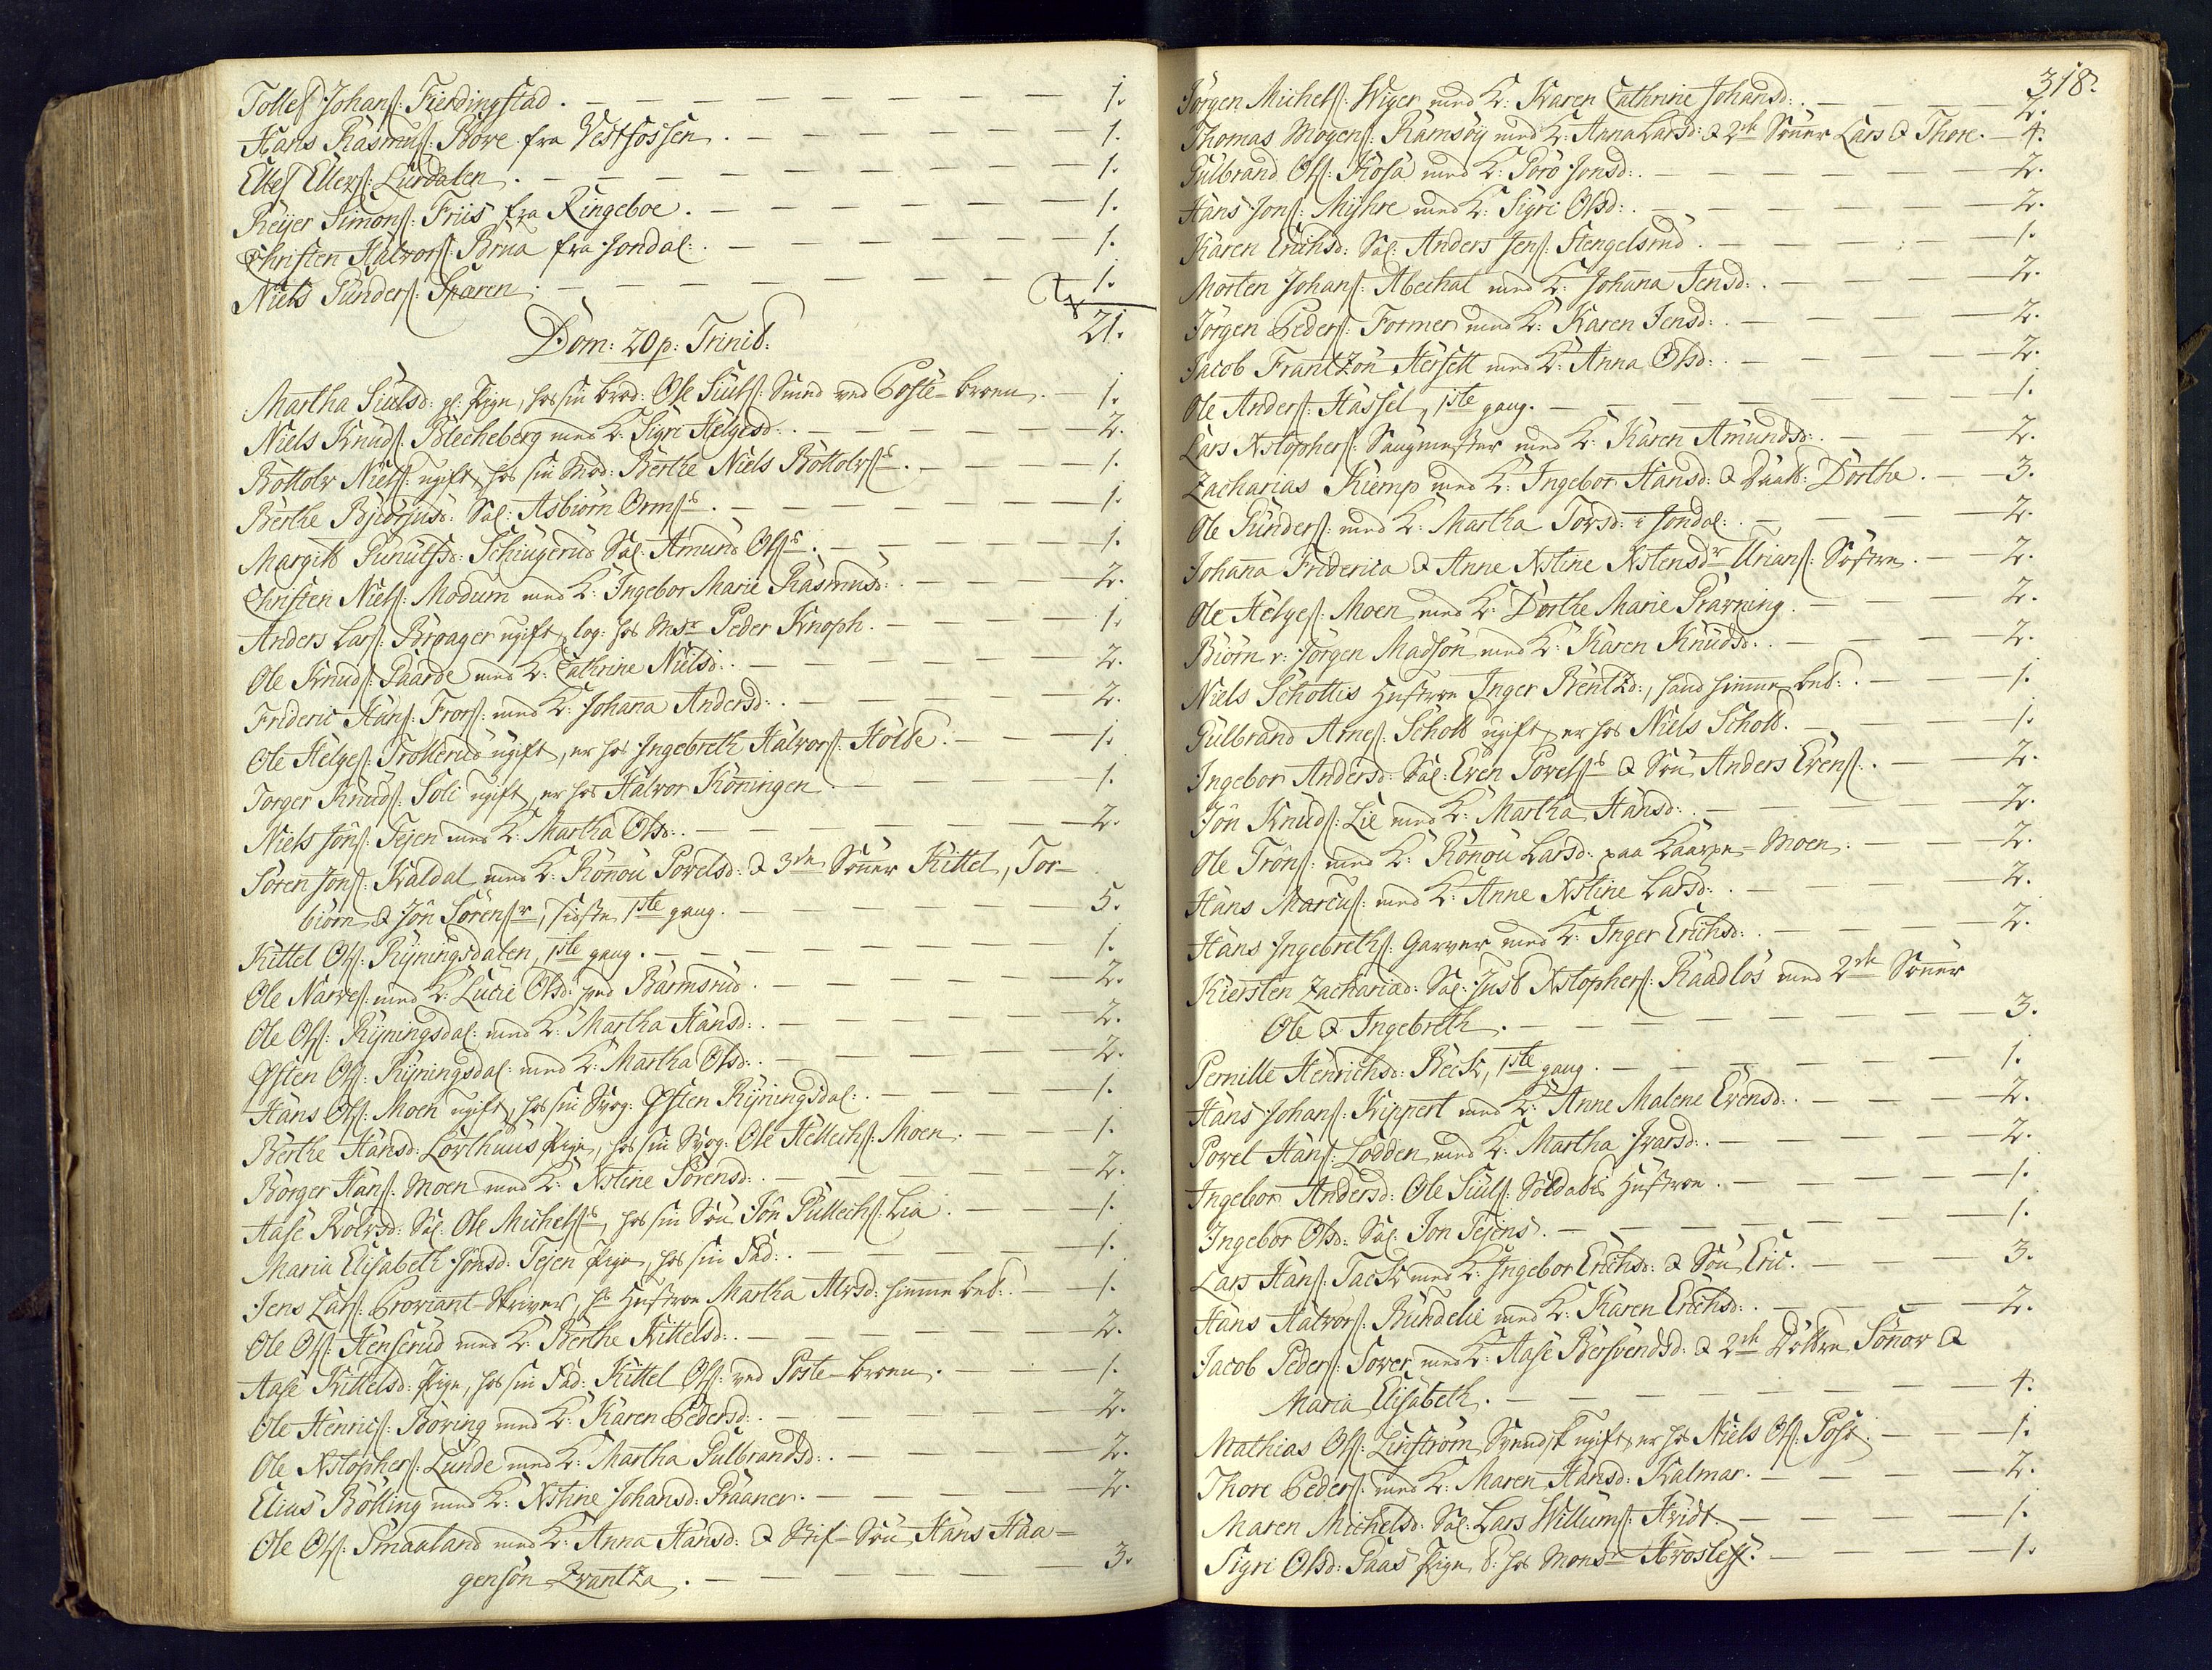 Tollef Johans: Fierdingstad. — 1.
Hans Rasmus: Bore fra Vestfossen. — 1.
Ellef Ellefs: Lurdalen. — 1.
Reijer Simons: Friis fra Ringeboe. — 1.
Christen Halvors: Brua fra Jondal:. — 1.
Niels Gunders: Sparen. — 1.
21.
Dom: 20 p: Trinit:
Martha Siulsd: gl: Pige, hos sin brod: Ole Siuls: Smed ved Poste-broen. — 1.
Niels Knuds: Blecheberg med K: Sigri Helgesd:. — 2.
Bottolv Niels: ugift, hos sin Mod: Berthe Niels Bottolvs:. — 1.
Berthe Bjørnsd: Sal: Asbiørn Orms:. — 1.
Margith Gunulfsd: Schiugerud Sal: Amund Ols:. — 1.
Christen Niels: Modum med K: Ingebor Marie Rasmusd:. — 2.
Anders Lars: Broager ugift, log: hos Msr Peder Knoph. — 1.
Ole Knuds: Gaarde med K: Cathrine Nielsd:. — 2.
Frideric Hans: Frors: med K: Johana Andersd:. — 2.
Ole Helges: Trollerud ugift, er hos Ingebreth Halvors: Holte. — 1.
Torger Knuds: Soli ugift, er hos Halvor Kønningen. — 1.
Niels Jons: Tejen med K: Martha Olsd:. — 2.
Søren Jons: Kaldal med K: Ronnou Povelsd: & 3de Sønner Kittel, Tor-
biørn & Jon Sørens:, sidste 1ste gang. — 5.
Kittel Ols: Ryningsdalen, 1ste gang. — 1.
Ole Narves: med K: Lucie Olsd: ved Barmsrud. — 2.
Ole Ols: Ryningsdal: med K: Martha Hansd:. — 2.
Østen Ols: Ryningsdal: med K: Martha Olsd:. — 2.
Hans Ols: Moen ugift, hos sin Svog: Østen Ryningsdal:. — 1.
Berthe Hansd: Lorthuus Pige, hos sin Svog: Ole Hellechs: Moen. — 1.
Børger Hans: Moen med K: Xstine Sørensd:. — 2.
Aase Rolvsd: Sal: Ole Michels:, hos sin Søn Jon Gullechs: Lia. — 1.
Maria Elisabeth Jonsd: Tejen Pige, hos sin Fad:. — 1.
Jens Lars: Proviant-Skriver, hs Hustroe Martha Alvsd: hiemme bet:. — 1.
Ole Ols: Henserud med K: Berthe Kittelsd:. — 2.
Aase Kittelsd: Pige, hos sin Fad: Kittel Ols: ved Poste-broen. — 1.
Ole Henrics: Boring med K: Karen Pedersd:. — 2.
Ole Xstophers: Lunde med K: Martha Gulbrandsd:. — 2.
Elias Bølling med K: Xstine Johansd: Graaner. — 2.
Ole Ols: Smaaland med K: Anna Hansd: & Stif-Søn Hans Haa-
gensøn Zvantza. — 3.
318.
Jørgen Michels: Wiger med K: Karen Cathrine Johansd:. — 2.
Thomas Mogens: Ramsøy med K: Anna Larsd: & 2de Sønner Lars & Thore. — 4.
Gulbrand Ols: Kosa med K: Goro Jonsd:. — 2.
Hans Jons: Myhre med K: Sigri Olsd:. — 2.
Karen Erichsd: Sal: Anders Jens: Stengelsrud. — 1.
Morten Johans: Abechat med K: Johana Jensd:. — 2.
Jørgen Peders: Former med K: Karen Jensd:. — 2.
Jacob Frantzøn Hersett med K: Anna Olsd:. — 2.
Ole Anders: Hassel, 1ste gang. — 1.
Lars Xstophers: Saugmester med K: Karen Amundsd:. — 2.
Zacharias Kiemp med K: Ingebor Hansd: & Daatt: Dorthe. — 3.
Ole Gunders: med K: Martha Torsd: i Jondal:. — 2.
Johana Friderica & Anne Xstine Xstensdr Urians: Søstre. — 2.
Ole Helges: Moen med K: Dorthe Marie Grarning. — 2.
Biørn v: Jørgen Madsøn med K: Karen Knudsd:. — 2.
Niels Schottis Hustroe Inger Bentsd:, hand hiemme bet:. — 1.
Gulbrand Arnes: Schott ugift, er hos Niels Schott. — 1.
Ingebor Andersd: Sal: Even Povels: & Søn Anders Evens:. — 2.
Jon Knuds: Lie med K: Martha Hansd:. — 2.
Ole Trons: med K: Ronou Larsd: paa Kaarpe-Moen. — 2.
Hans Marcus: med K: Anne Xstine Larsd:. — 2.
Hans Ingebreths: Garver med K: Inger Erichsd:. — 2.
Kiersten Zachariad: Sal: Just Xstophers: Raadløs med 2de Sønner
Ole & Ingebreth. — 3.
Pernille Henrichsd: Beck, 1ste gang. — 1.
Hans Johans: Kippert med K: Anne Malene Evensd:. — 2.
Povel Hans: Lodden med K: Martha Ivarsd:. — 2.
Ingebor Andersd: Ole Siuls: Soldatis Hustroe. — 1.
Ingebor Olsd: Sal: Jon Tejens. — 1.
Lars Hans: Tack med K: Ingebor Erichsd: & Søn Eric. — 3.
Hans Halvors: Bundelie med K: Karen Erichsd:. — 2.
Jacob Peders: Sover med K: Aase Bersvendsd: & 2de Døttre Sønov &
Maria Elisabeth. — 4.
Mathias Ols: Linstrøm Svendsk ugift, er hos Niels Ols: Post. — 1.
Thore Peders: med K: Maren Hansd: Kalmar. — 2.
Maren Michelsd: Sal: Lars Willums: Hvidt. — 1.
Sigri Olsd: Gaas Pige, t: hos Monsr — 1.